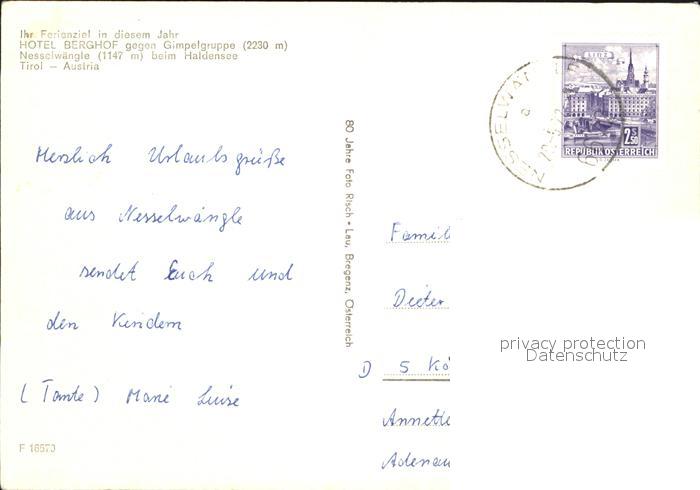 Ihr Ferienziel in diesem Jahr
HOTEL BERGHOF gegen Gimpelgruppe (2230 m)
Nesselwängle (1147 m) beim Haldensee
Tirol — Austria
Herzlich Urlaubsgrüße
aus Nesselwängle
sendet Euch und
den Kindern
(Tante) Marie Luise
F 16570
80 Jahre Foto Risch - Lau, Bregenz, Österreich
LINZ
2 S 50
REPUBLIK ÖSTERREICH
NESSELWÄ
a
Famil
Dieter
D 5 Kö
Annette
Adenau
privacy protection
Datenschutz